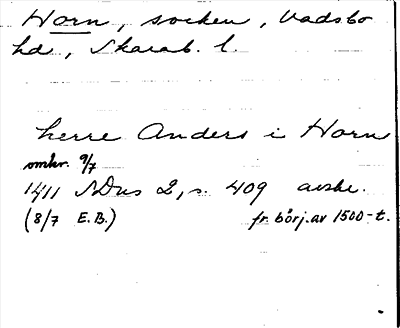 Horn, socken, Vadsbo
hd, Skarab. l.
herre Anders i Horn
omkr. 9/7
1411 SDns 2, s. 409 avskr.
(8/7 E.B.) fr. börj. av 1500-t.